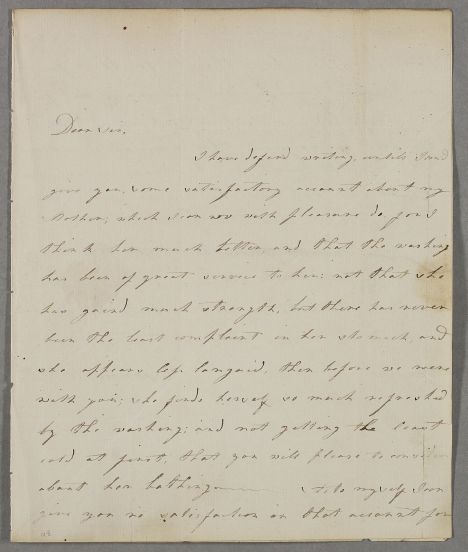 Dear Sir,
I have deferd writing, untill I could
give you, some satisfactory account about my
Mother; which I can now with pleasure do for I
think her much better, and that the washing
has been of great service to her; not that she
has gaind much strength, but there has never
been the least complaint in her stomach, and
she appears less languid, then before we were
with you; she finds herself so much refreshed
by the washing; and not getting the least
cold at first, that you will please to consider
about her bathing As to myself I can
give you no satisfaction on that account for